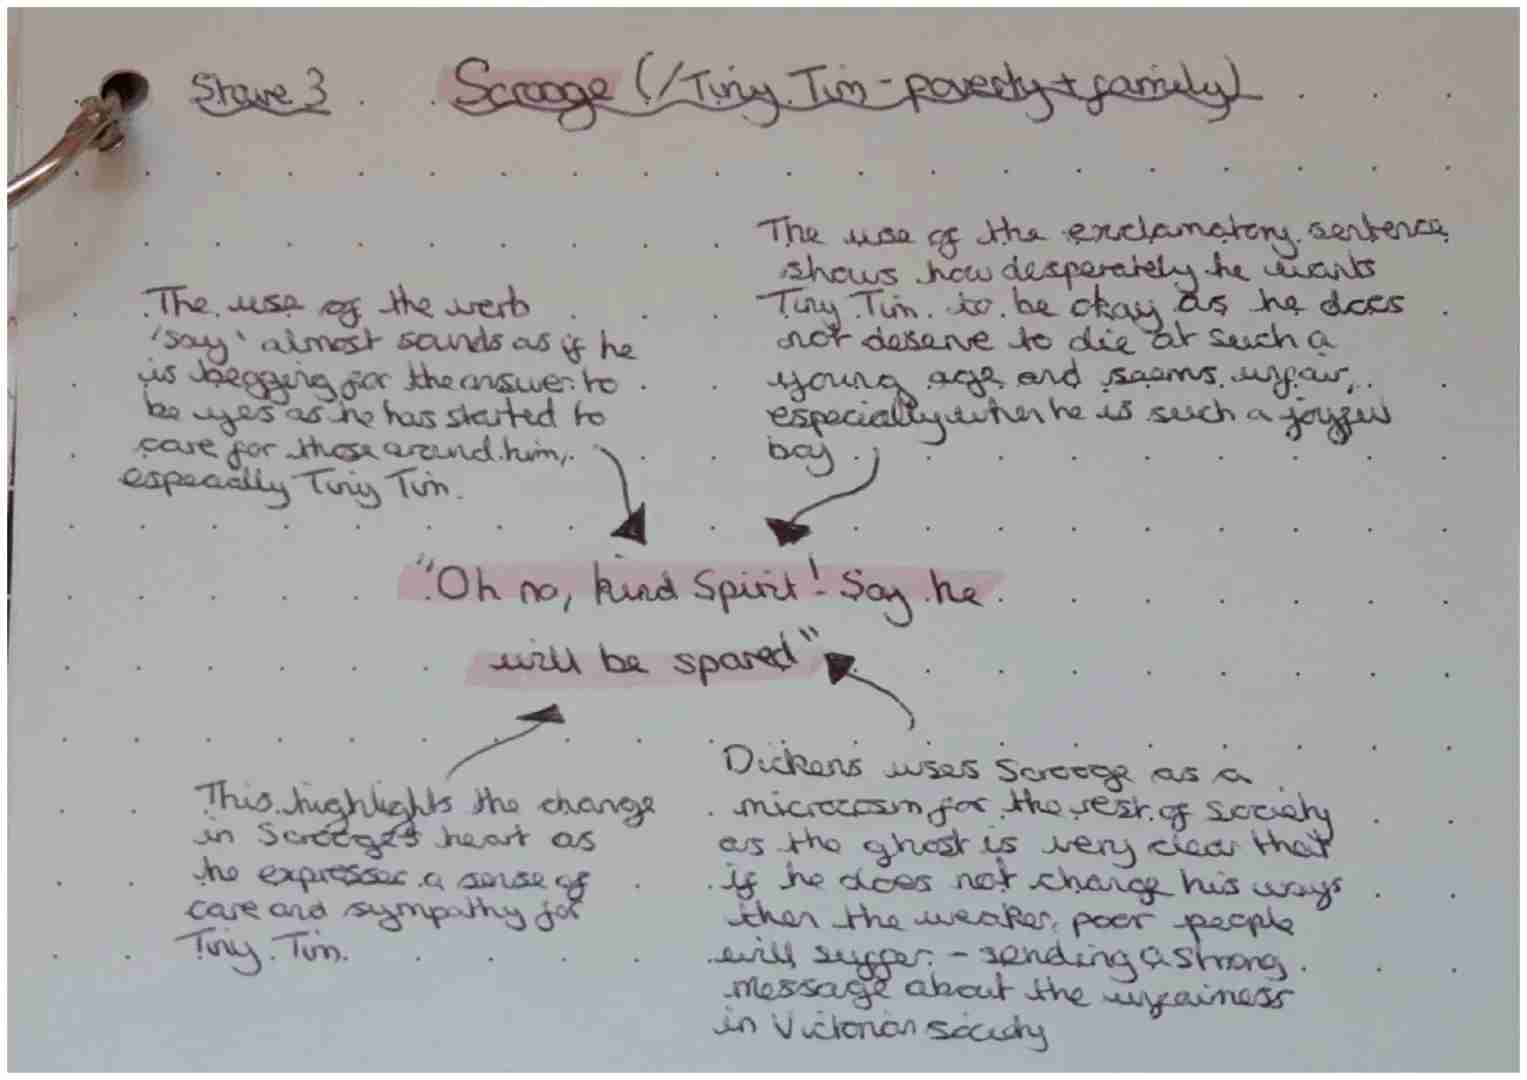 Stave 3
Scrooge (/Tiny Tim - poverty + family)
The use of the verb
'say' almost sounds as if he
is begging for the answer to
be yes as he has started to
care for those around him,
especially Tiny Tim.
The use of the exclamatory sentence
shows how desperately he wants
Tiny Tim to be okay as he does
not deserve to die at such a
young age and seems unfair,
especially when he is such a joyful
boy
"Oh no, kind Spirit! Say he
will be spared"
This highlights the change
in Scrooge's heart as
he expresses a sense of
care and sympathy for
Tiny Tim.
Dickens uses Scrooge as a
microcosm for the rest of society
as the ghost is very clear that
if he does not change his ways
then the weaker, poor people
will suffer - sending a strong
message about the unfairness
in Victorian society